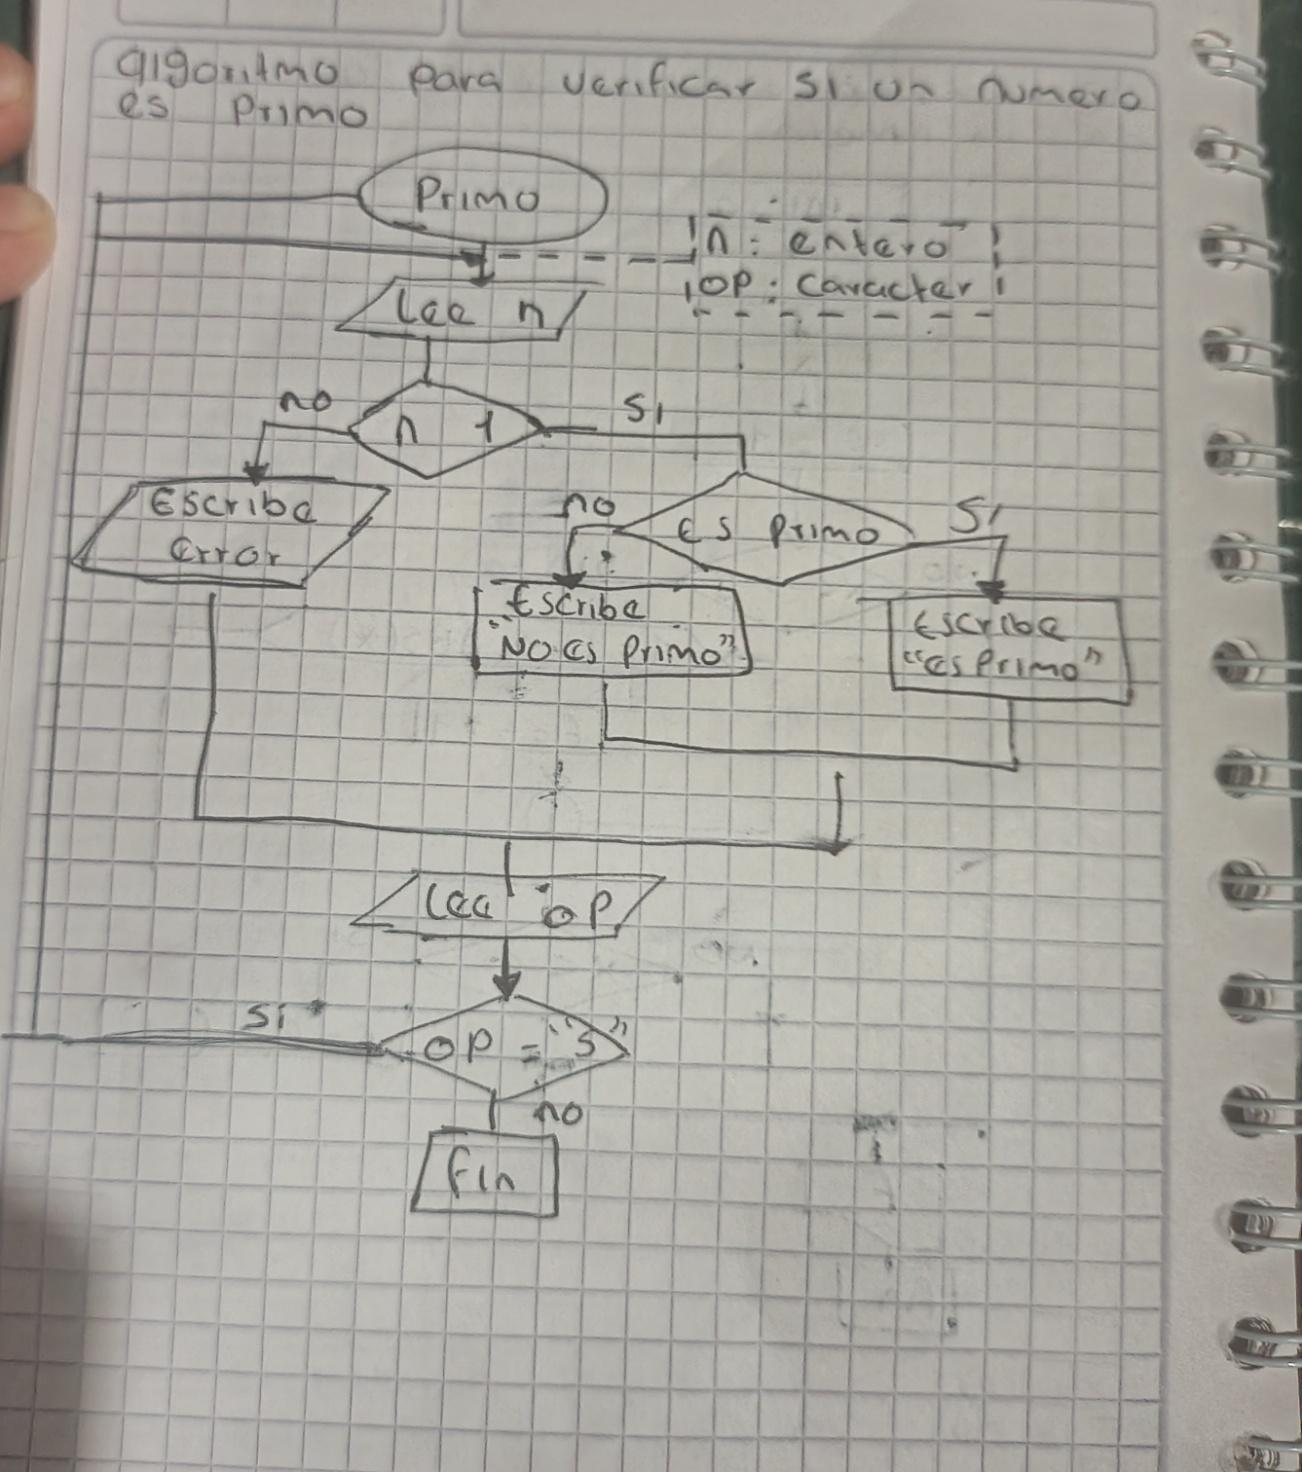 algoritmo para verificar si un numero
es primo
Primo
n : entero
OP : Caracter
Lee n
no
n 1
Si
Escribe
error
no
Es primo
Si
Escribe
"No es primo"
Escribe
"es primo"
Lee op
Si
OP = "S"
no
Fin